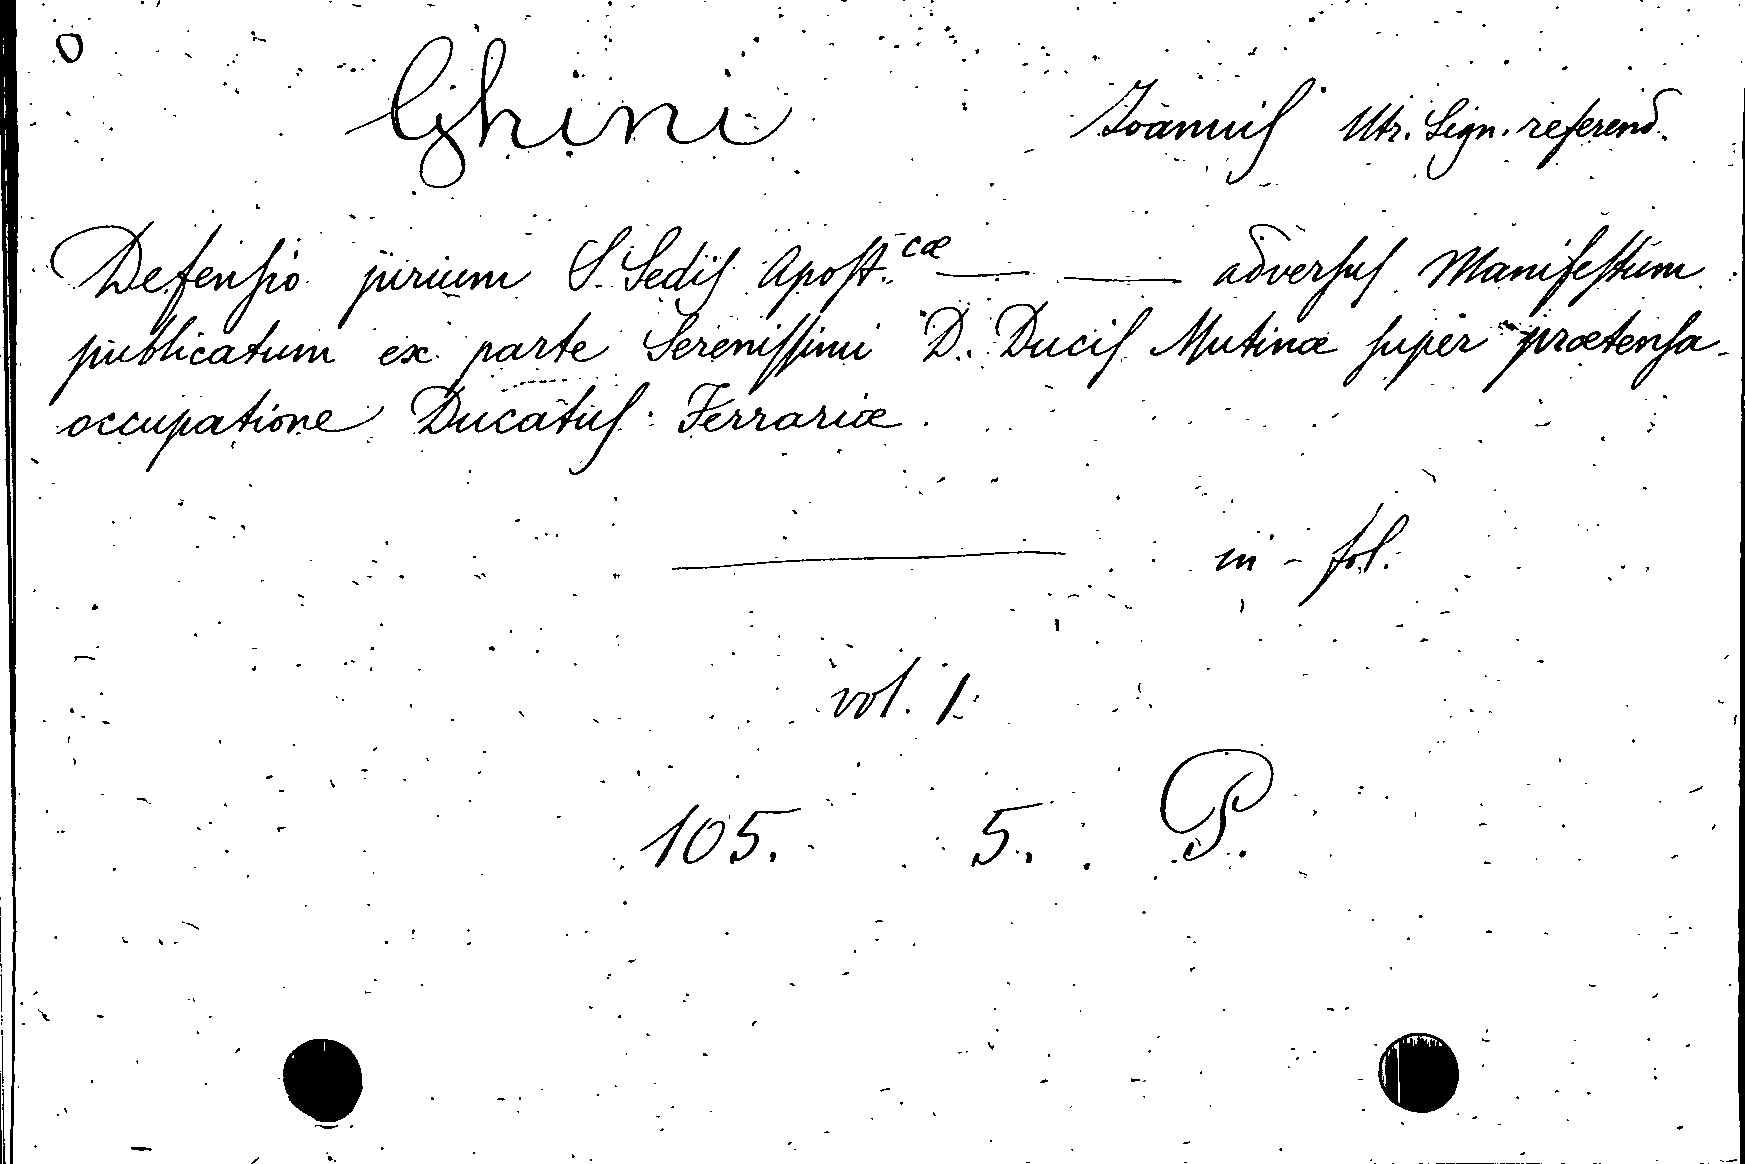 O
Ghini Joannis Utr. Sign. referend.
Defensio jurium S. Sedis Apost.cæ — — adversus Manifestum
publicatum ex parte Serenissimi D. Ducis Mutinæ super prætensa
occupatione Ducatus Ferrariæ.
— in-fol.
vol. 1.
105. 5. P.